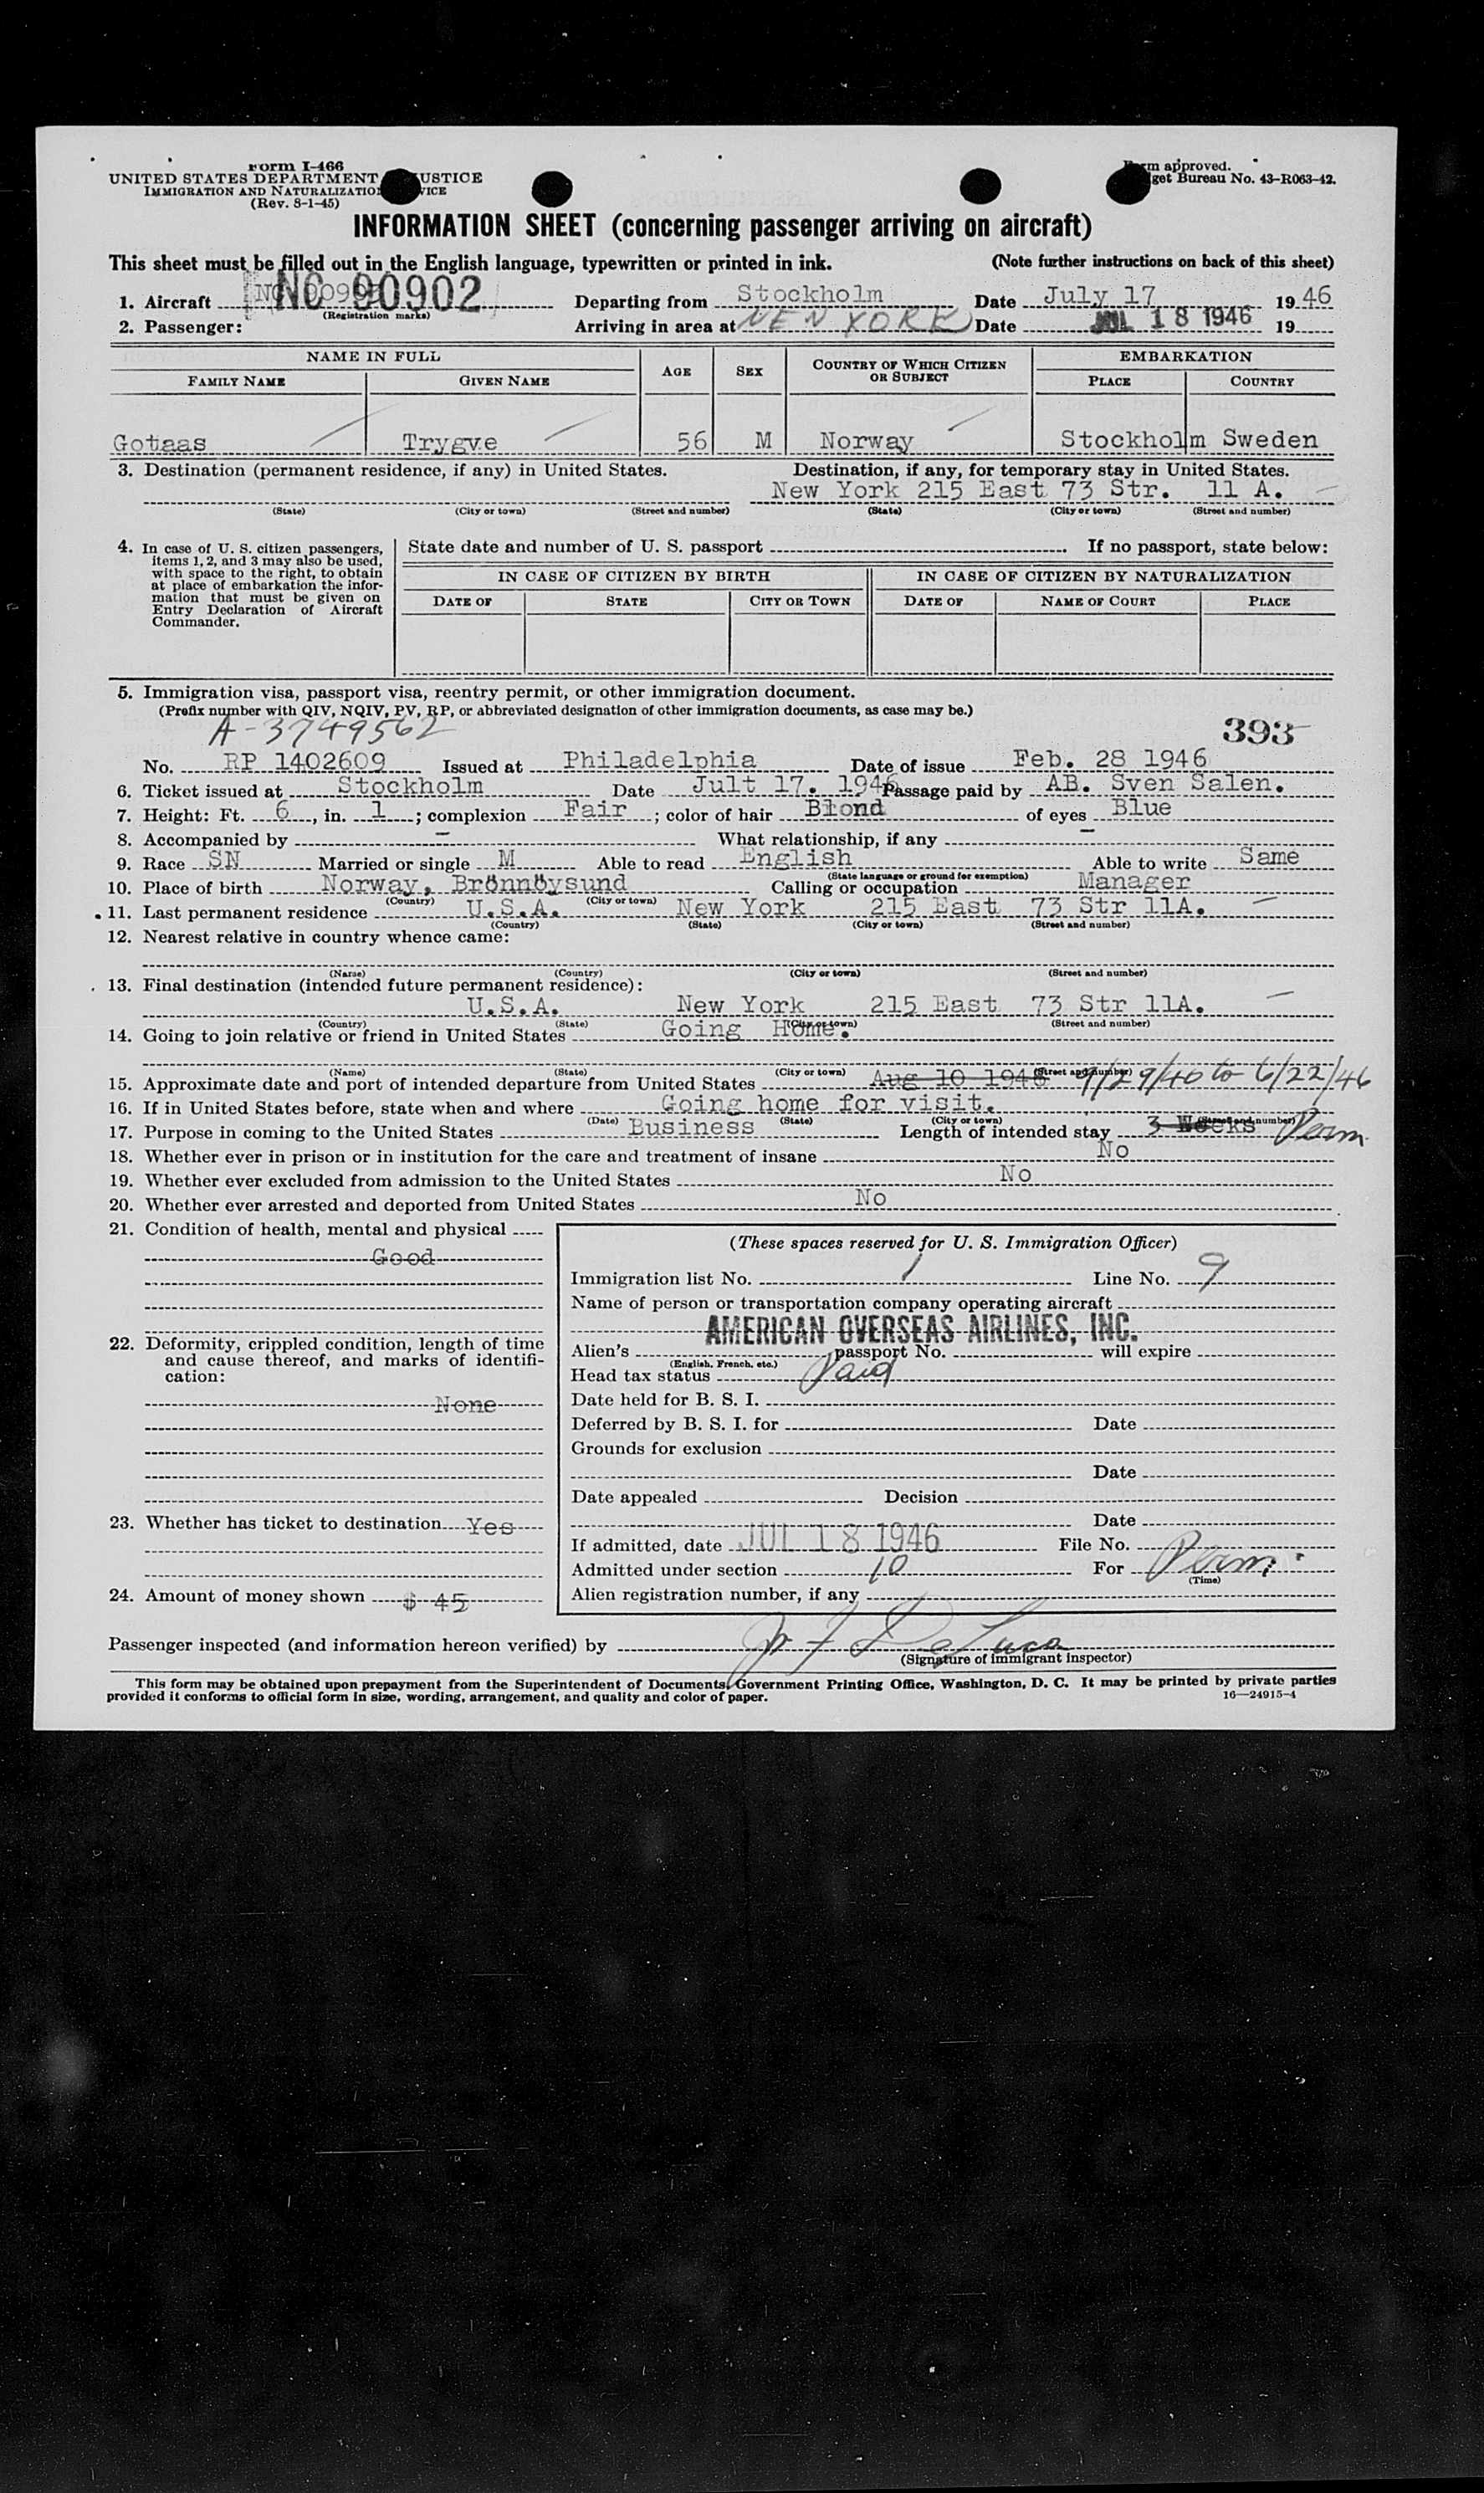 Form I-466
UNITED STATES DEPARTMENT USTICE
IMMIGRATION AND NATURALIZATION VICE
(Rev. 8-1-45)
m approved.
get Bureau No. 43-R063-42.
INFORMATION SHEET (concerning passenger arriving on aircraft)
This sheet must be filled out in the English language, typewritten or printed in ink. (Note further instructions on back of this sheet)
1. Aircraft NC 90902 Departing from Stockholm Date July 17 1946
(Registration marks)
2. Passenger: Arriving in area at NEW YORK Date JUL 18 1946 19
NAME IN FULL AGE SEX COUNTRY OF WHICH CITIZEN OR SUBJECT EMBARKATION
FAMILY NAME GIVEN NAME PLACE COUNTRY
Gotaas Trygve 56 M Norway Stockholm Sweden
3. Destination (permanent residence, if any) in United States. Destination, if any, for temporary stay in United States.
New York 215 East 73 Str. 11 A.
(State) (City or town) (Street and number) (State) (City or town) (Street and number)
4. In case of U. S. citizen passengers, items 1, 2, and 3 may also be used, with space to the right, to obtain at place of embarkation the information that must be given on Entry Declaration of Aircraft Commander.
State date and number of U. S. passport If no passport, state below:
IN CASE OF CITIZEN BY BIRTH IN CASE OF CITIZEN BY NATURALIZATION
DATE OF STATE CITY OR TOWN DATE OF NAME OF COURT PLACE
5. Immigration visa, passport visa, reentry permit, or other immigration document.
(Prefix number with QIV, NQIV, PV, RP, or abbreviated designation of other immigration documents, as case may be.)
A-3749562 393
No. RP 1402609 Issued at Philadelphia Date of issue Feb. 28 1946
6. Ticket issued at Stockholm Date Jult 17. 1946 Passage paid by AB. Sven Salen.
7. Height: Ft. 6, in. 1; complexion Fair; color of hair Blond of eyes Blue
8. Accompanied by - What relationship, if any -
9. Race SN Married or single M Able to read English Able to write Same
(State language or ground for exemption)
10. Place of birth Norway, Brönnöysund Calling or occupation Manager
(Country) (City or town)
11. Last permanent residence U.S.A. New York 215 East 73 Str 11A.
(Country) (State) (City or town) (Street and number)
12. Nearest relative in country whence came:
(Name) (Country) (City or town) (Street and number)
13. Final destination (intended future permanent residence):
U.S.A. New York 215 East 73 Str 11A.
(Country) (State) (City or town) (Street and number)
14. Going to join relative or friend in United States Going Home.
(Name) (State) (City or town) (Street and number)
15. Approximate date and port of intended departure from United States Aug 10 1946 9/29/40 to 6/22/46
16. If in United States before, state when and where Going home for visit.
(Date) (State) (City or town) (Street and number)
17. Purpose in coming to the United States Business Length of intended stay 3 Weeks Perm
18. Whether ever in prison or in institution for the care and treatment of insane No
19. Whether ever excluded from admission to the United States No
20. Whether ever arrested and deported from United States No
21. Condition of health, mental and physical
Good
22. Deformity, crippled condition, length of time and cause thereof, and marks of identification:
None
23. Whether has ticket to destination Yes
24. Amount of money shown $ 45
(These spaces reserved for U. S. Immigration Officer)
Immigration list No. 1 Line No. 9
Name of person or transportation company operating aircraft
AMERICAN OVERSEAS AIRLINES, INC.
Alien's passport No. will expire
(English, French, etc.)
Head tax status Paid
Date held for B. S. I.
Deferred by B. S. I. for Date
Grounds for exclusion
Date
Date appealed Decision
Date
If admitted, date JUL 18 1946 File No.
Admitted under section 10 For Perm.
(Time)
Alien registration number, if any
Passenger inspected (and information hereon verified) by De Luca
(Signature of immigrant inspector)
This form may be obtained upon prepayment from the Superintendent of Documents, Government Printing Office, Washington, D. C. It may be printed by private parties
provided it conforms to official form in size, wording, arrangement, and quality and color of paper. 16—24915-4